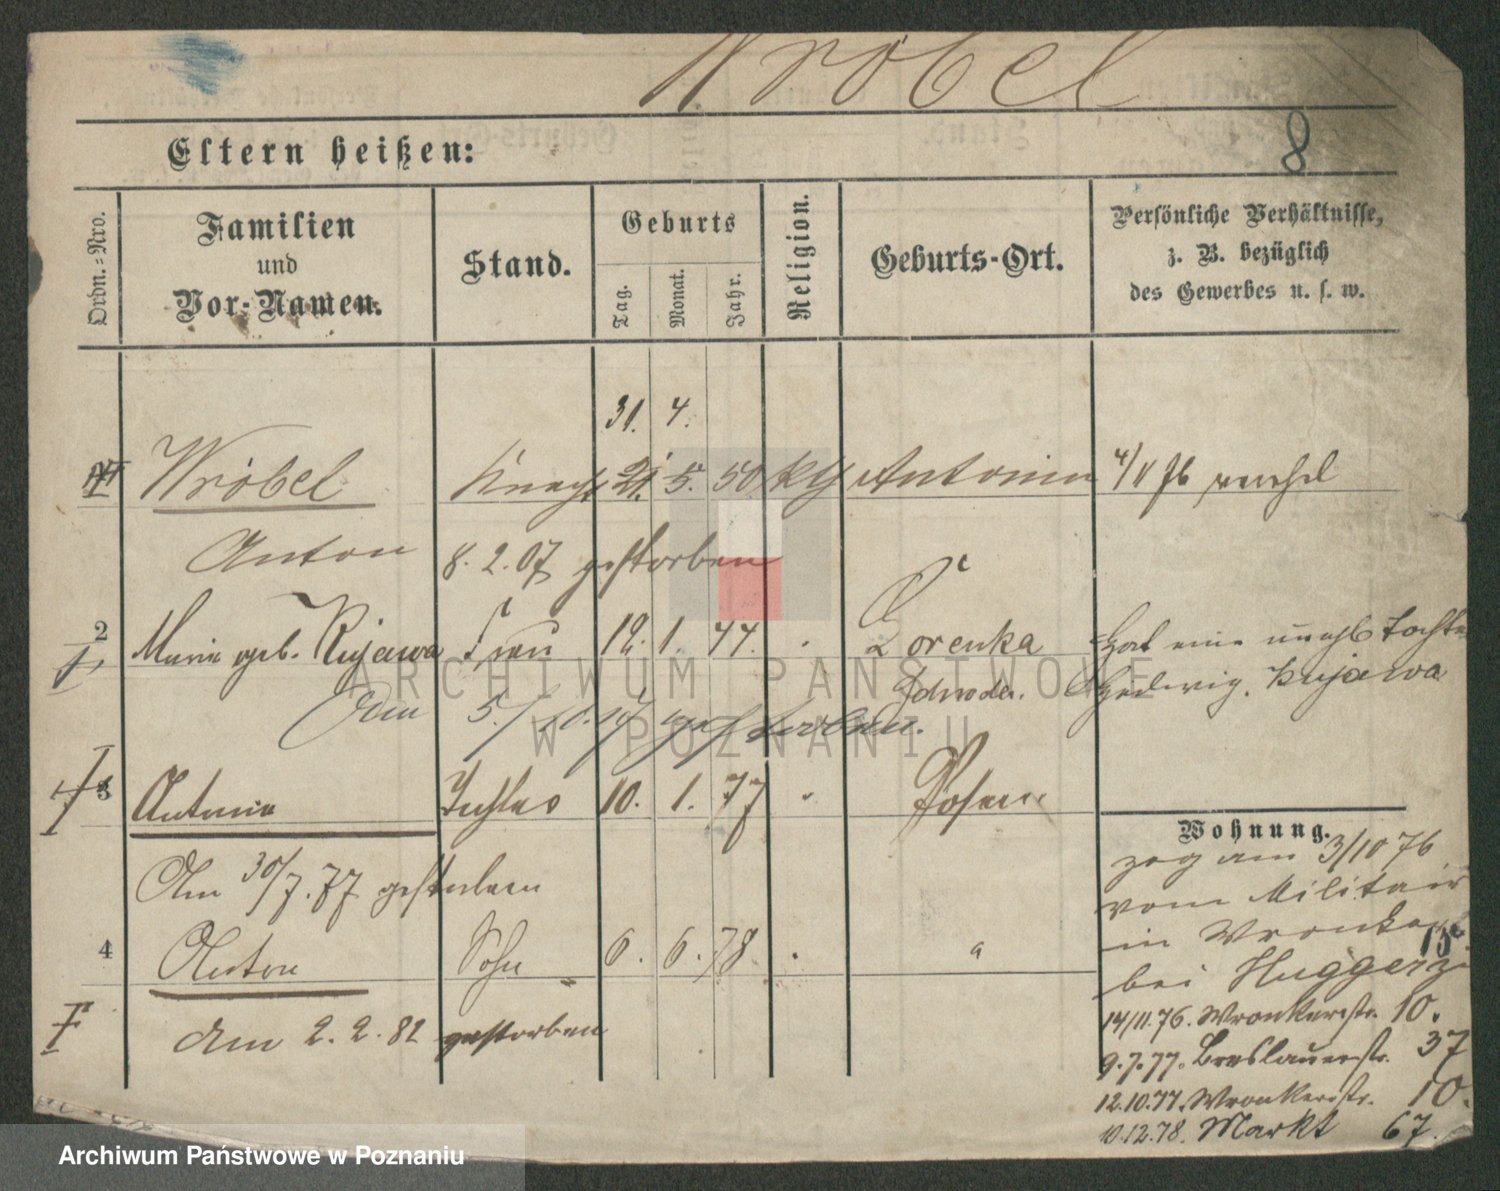 Wróbel
8
Eltern heißen:
Ordn.-Nro.
Familien
und
Vor-Namen.
Stand.
Geburts
Tag.
Monat.
Jahr.
Religion.
Geburts-Ort.
Persönliche Verhältnisse,
z. B. bezüglich
des Gewerbes u. s. w.
31. 4.
Wróbel Knecht 21. 5. 50 kth Antonin 4/11 76
Anton 8. 2. 07 gestorben
2 Marie geb. Kujawa Frau 12. 1. 44. Lorenka
Hat eine unehl Tochter
Schroda. Hedwig Kujawa
gestorben.
3 Antonie Tochter 10. 1. 77 Posen
Am 30/7. 77 gestorben
4 Anton Sohn 6. 6. 78
am 2. 2. 82 gestorben
Wohnung.
zog am 3/10 76
vom Militair
in Wronker
bei Hugger
14/11.76. Wronkerstr. 10.
9.7.77. Breslauerstr. 37
12.10.77. Wronkerstr. 10.
10.12.78. Markt 67.
ARCHIWUM PAŃSTWOWE
W POZNANIU
Archiwum Państwowe w Poznaniu